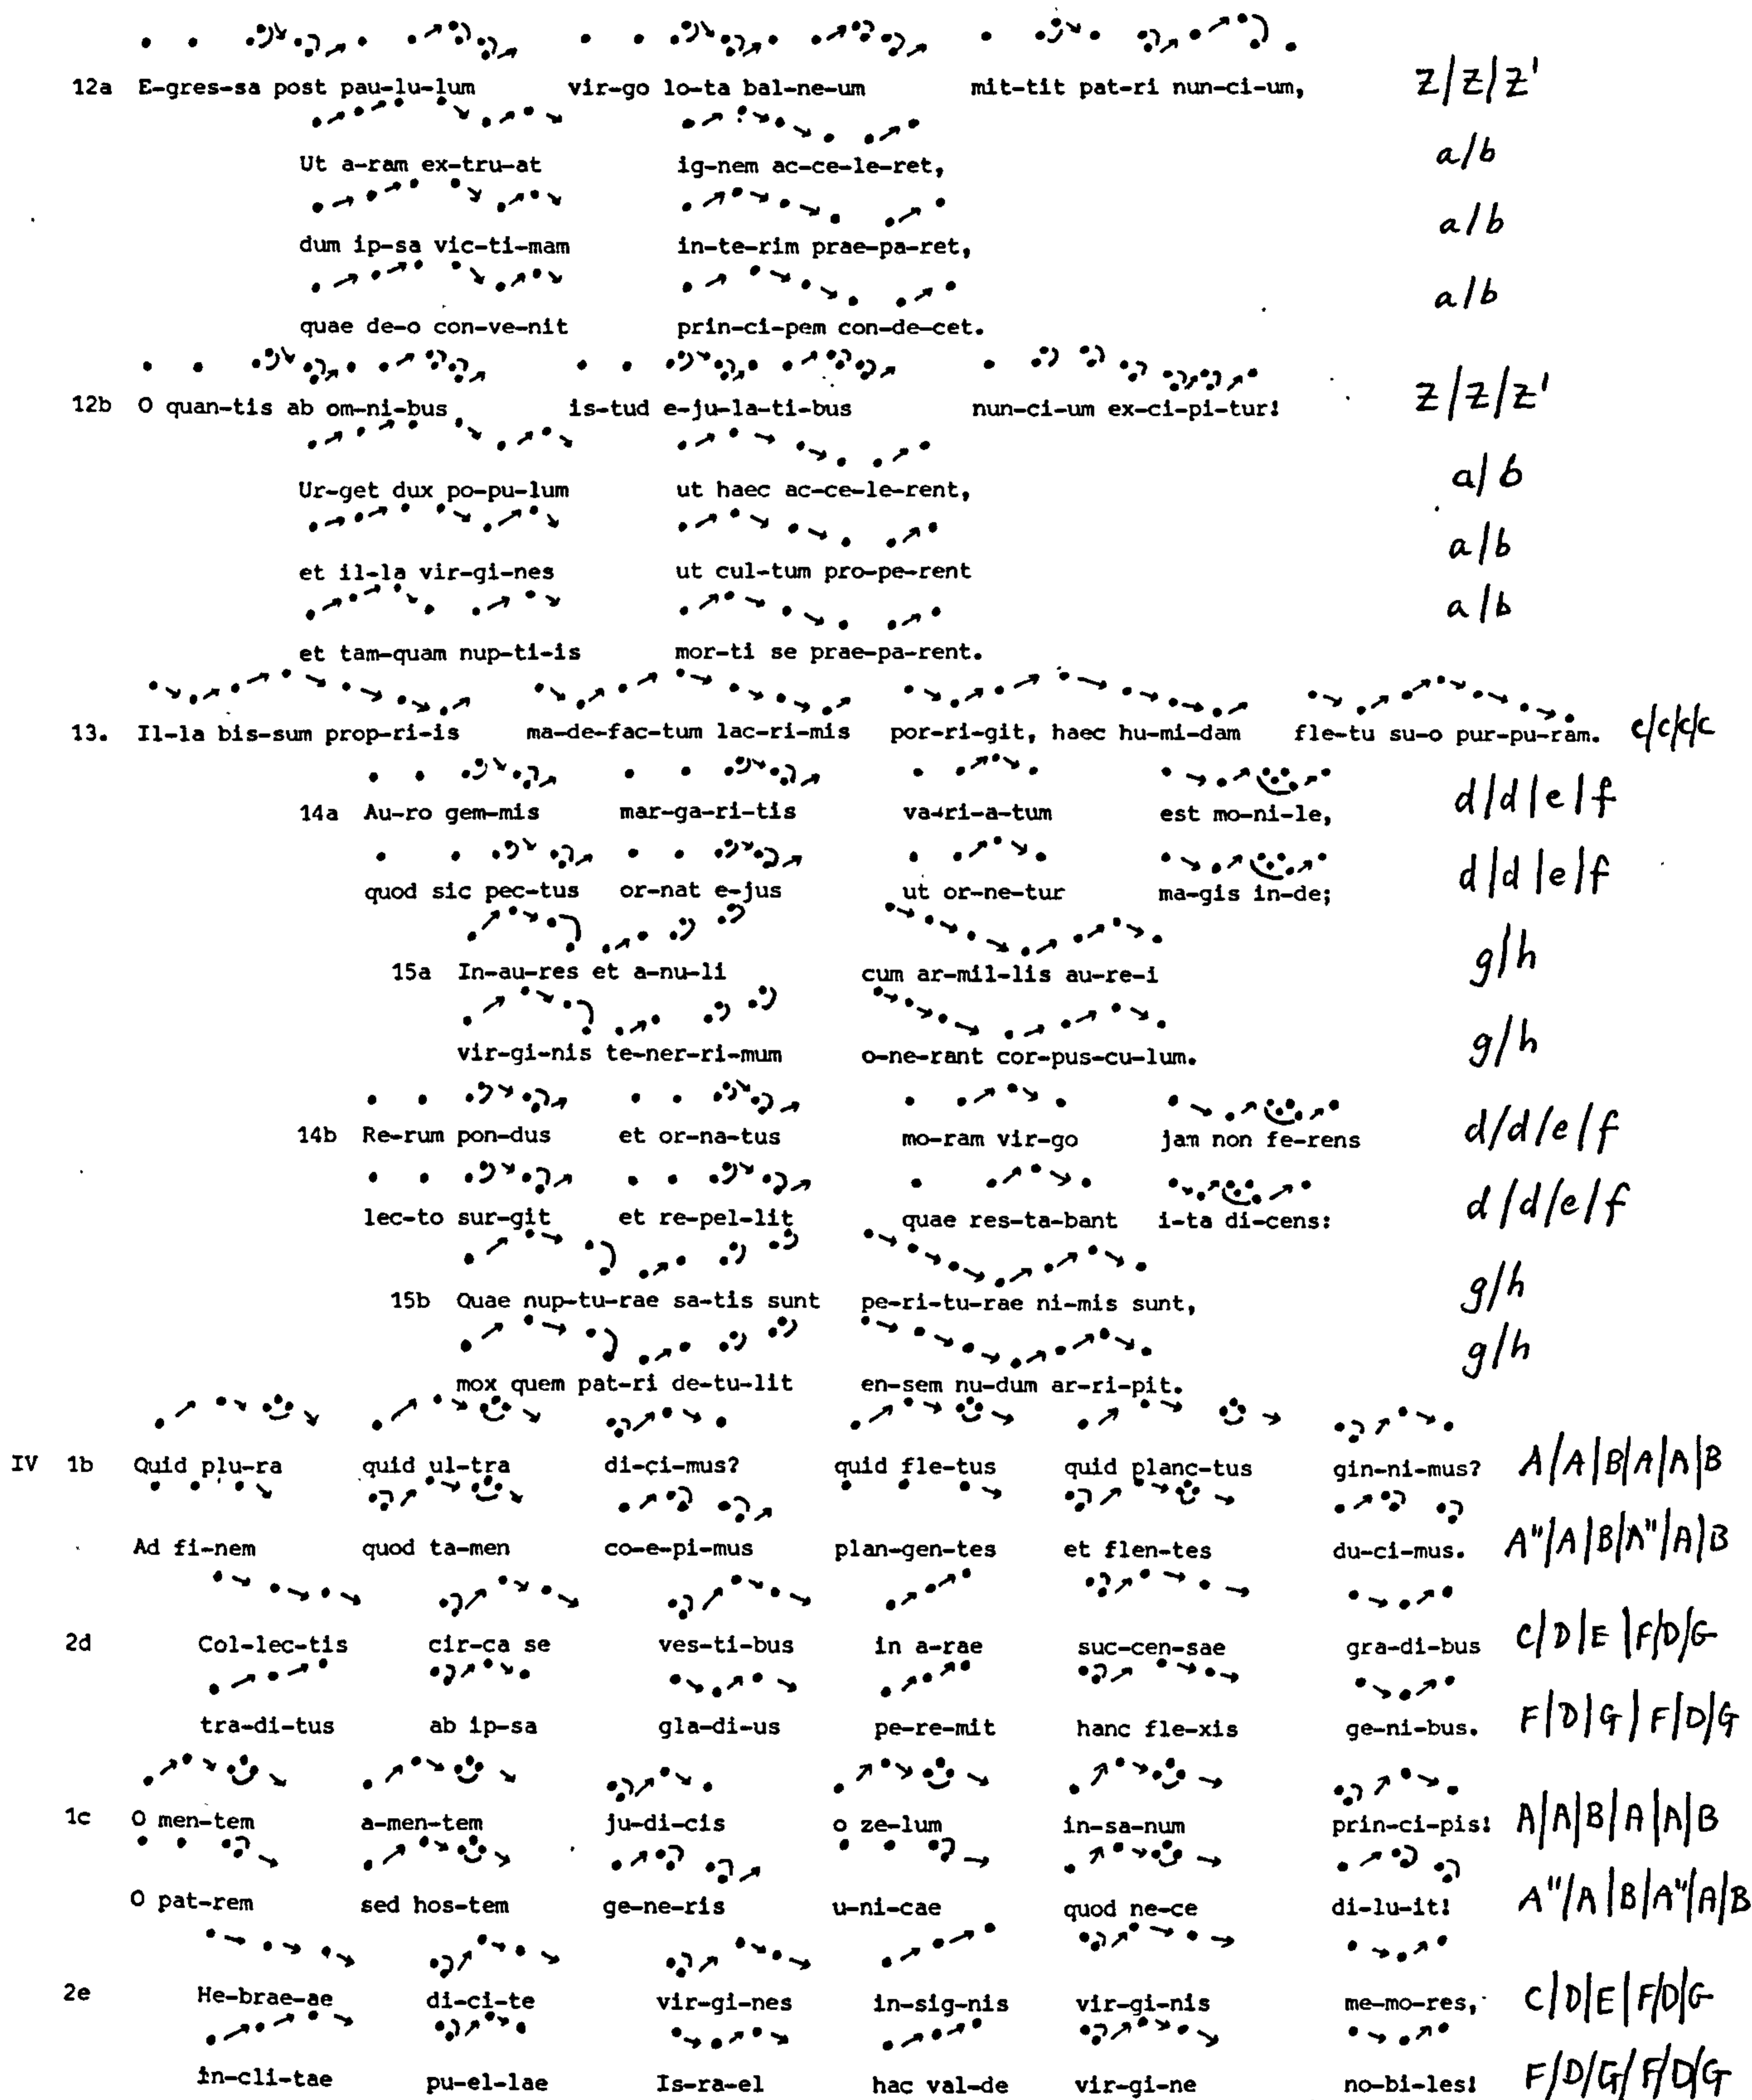 12a E-gres-sa post pau-lu-lum vir-go lo-ta bal-ne-um mit-tit pat-ri nun-ci-um, Z/Z/Z'
Ut a-ram ex-tru-at ig-nem ac-ce-le-ret, a/b
dum ip-sa vic-ti-mam in-te-rim prae-pa-ret, a/b
quae de-o con-ve-nit prin-ci-pem con-de-cet. a/b
12b O quan-tis ab om-ni-bus is-tud e-ju-la-ti-bus nun-ci-um ex-ci-pi-tur! Z/Z/Z'
Ur-get dux po-pu-lum ut haec ac-ce-le-rent, a/b
et il-la vir-gi-nes ut cul-tum pro-pe-rent a/b
et tam-quam nup-ti-is mor-ti se prae-pa-rent. a/b
13. Il-la bis-sum prop-ri-is ma-de-fac-tum lac-ri-mis por-ri-git, haec hu-mi-dam fle-tu su-o pur-pu-ram. c/c/c/c
14a Au-ro gem-mis mar-ga-ri-tis va-ri-a-tum est mo-ni-le, d/d/e/f
quod sic pec-tus or-nat e-jus ut or-ne-tur ma-gis in-de; d/d/e/f
15a In-au-res et a-nu-li cum ar-mil-lis au-re-i g/h
vir-gi-nis te-ner-ri-mum o-ne-rant cor-pus-cu-lum. g/h
14b Re-rum pon-dus et or-na-tus mo-ram vir-go jam non fe-rens d/d/e/f
lec-to sur-git et re-pel-lit quae res-ta-bant i-ta di-cens: d/d/e/f
15b Quae nup-tu-rae sa-tis sunt pe-ri-tu-rae ni-mis sunt, g/h
mox quem pat-ri de-tu-lit en-sem nu-dum ar-ri-pit. g/h
IV 1b Quid plu-ra quid ul-tra di-ci-mus? quid fle-tus quid planc-tus gin-ni-mus? A/A/B/A/A/B
Ad fi-nem quod ta-men co-e-pi-mus plan-gen-tes et flen-tes du-ci-mus. A"/A/B/A"/A/B
2d Col-lec-tis cir-ca se ves-ti-bus in a-rae suc-cen-sae gra-di-bus C/D/E/F/D/G
tra-di-tus ab ip-sa gla-di-us pe-re-mit hanc fle-xis ge-ni-bus. F/D/G/F/D/G
1c O men-tem a-men-tem ju-di-cis o ze-lum in-sa-num prin-ci-pis! A/A/B/A/A/B
O pat-rem sed hos-tem ge-ne-ris u-ni-cae quod ne-ce di-lu-it! A"/A/B/A"/A/B
2e He-brae-ae di-ci-te vir-gi-nes in-sig-nis vir-gi-nis me-mo-res, C/D/E/F/D/G
in-cli-tae pu-el-lae Is-ra-el hac val-de vir-gi-ne no-bi-les! F/D/G/F/D/G